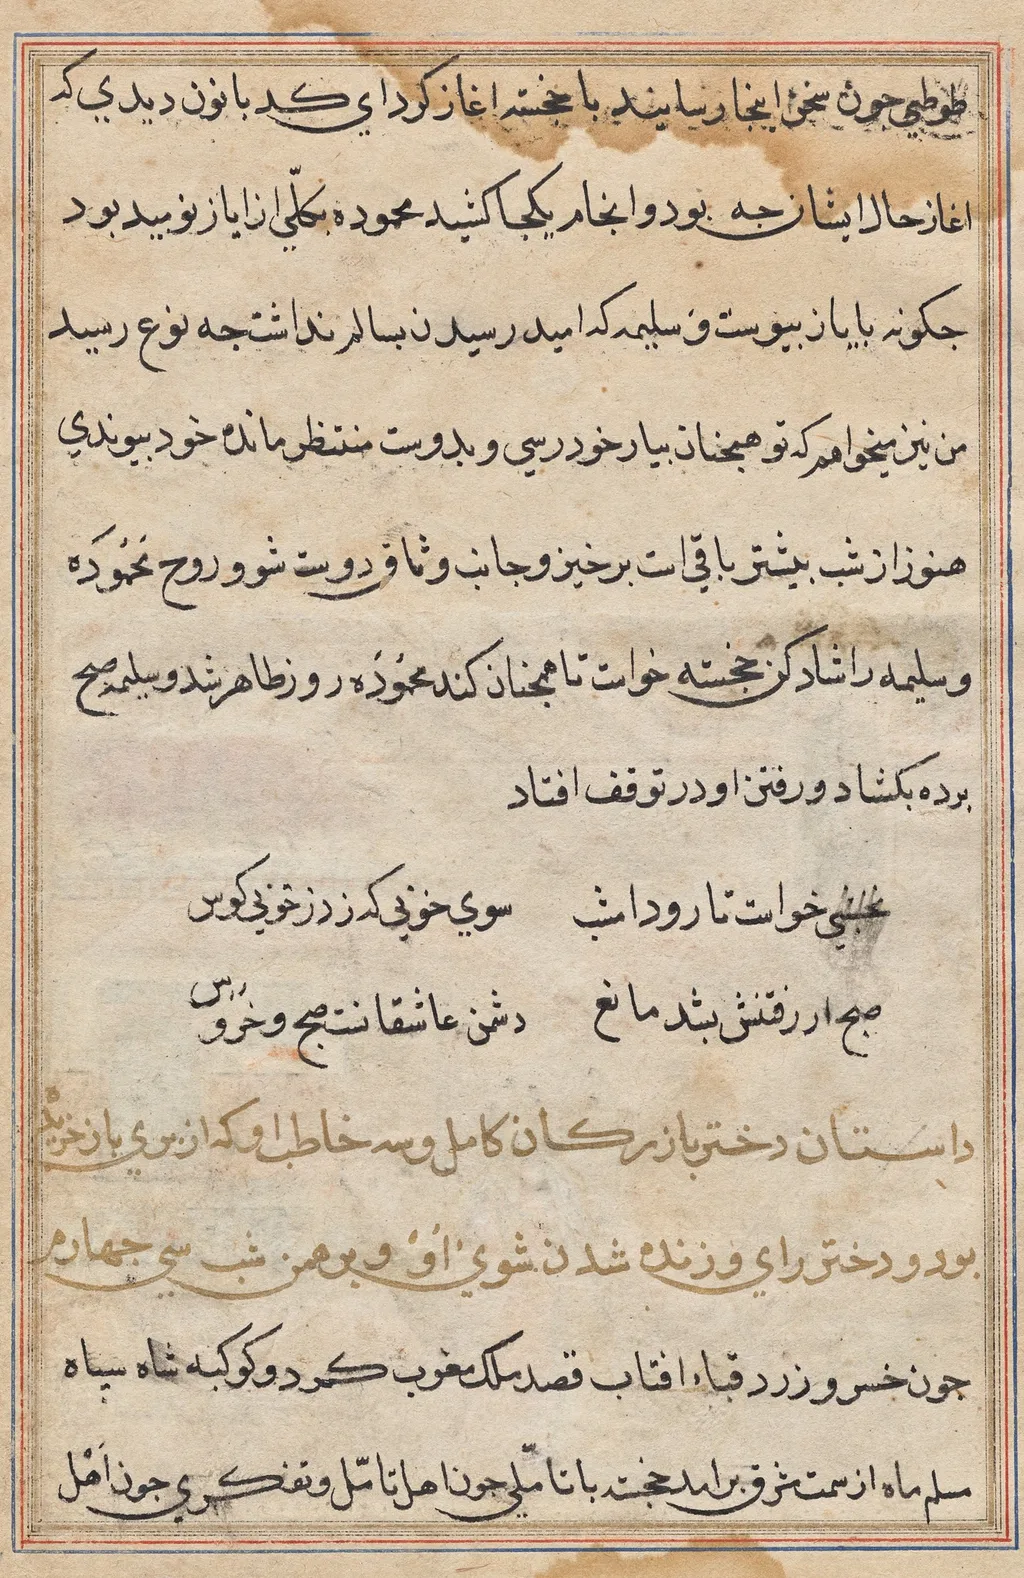 طوطي جون سخن اينجا رسانيد با خجسته اغاز كرد اي كد بانون ديدي كه
اغاز حال ايشان جه بود و انجام يكجا كشيد محموده بكلّي از اياز نوميد بود
جكونه باياز بيوست و سليمه كه اميد رسيدن بسالم نداشت جه نوع رسيد
من نيز ميخواهم كه تو همجنان بيار خود رسي و بدوست منتظر مانده خود بيوندي
هنوز از شب بيشتر باقي است برخيز و جانب وثاق دوست شو و روح محموده
و سليمه را شاد كن خجسته خواست تا همجنان كند محموده روز ظاهر شد و سليمه صبح
برده بكشاد و رفتن او در توقف افتاد
نخشبي خواست تا رود امشب سوي خوبي كه زد ز خوبي كوس
صبح از رفتنش بشد مانع دشمن عاشقانست صبح و خروس
داستان دختر بازركان كامل و سه خاطب او كه از بري باز خريده
بود و دختر راي و زنده شدن شوي او و برهمن شب سي جهارم
جون خسرو زرد قباء افتاب قصد ملك مغرب كرد و كوكبه شاه سپاه
مسلم ماه از سمت مشرق برامد خجسته با تاملّي جون اهل تامّل و تفكري جون اهل